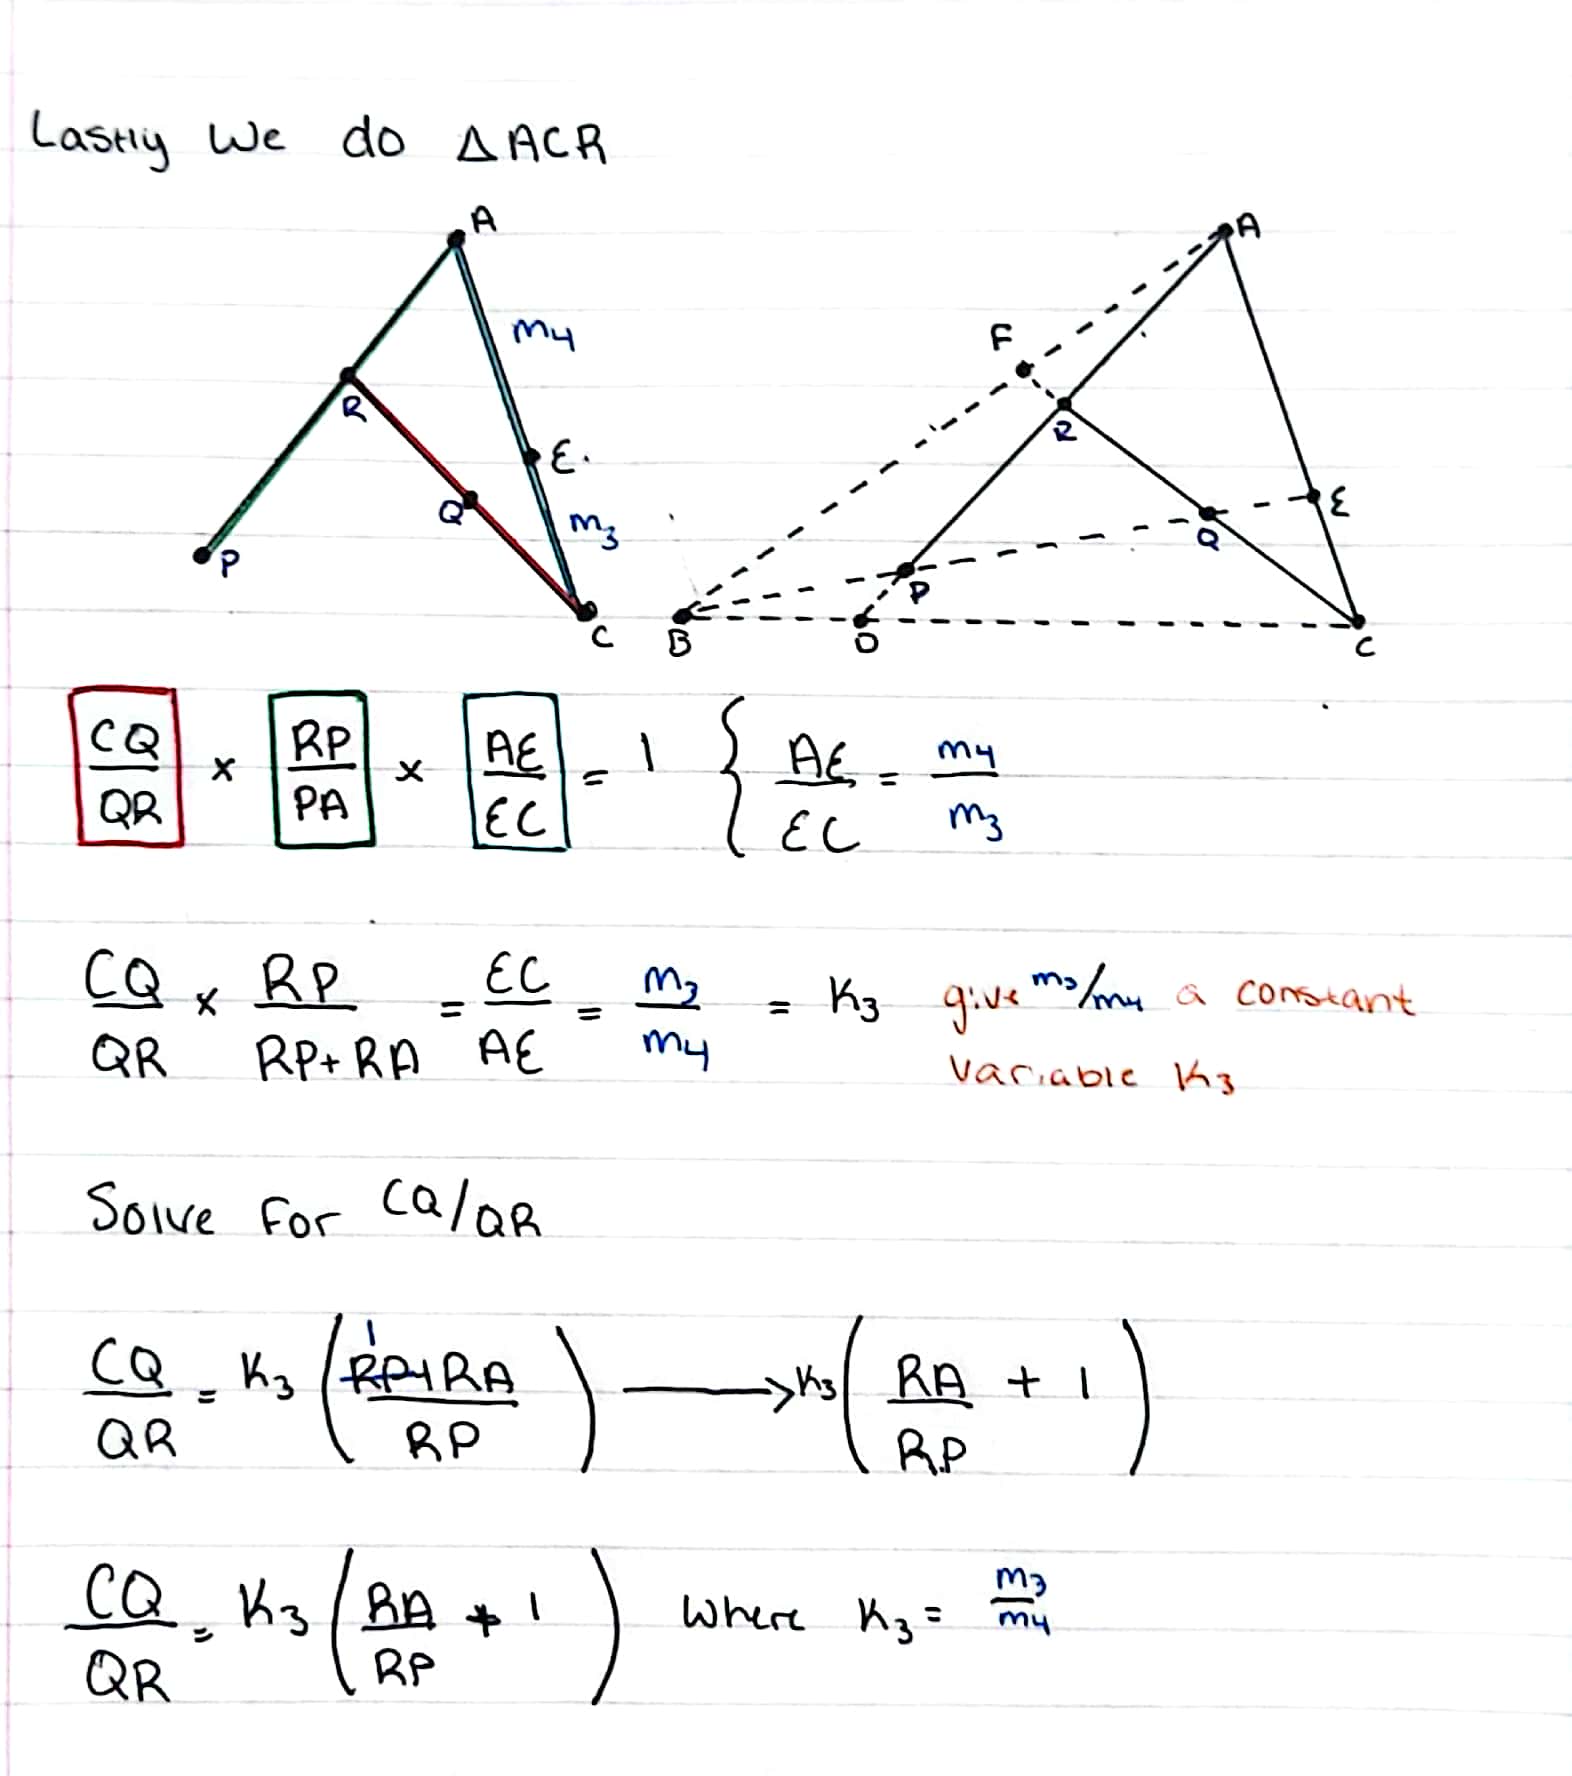 Lastly We do △ACR
A
m4
R
E.
Q
m3
P
C
A
F
R
E
Q
P
B
D
C
CQ/QR × RP/PA × AE/EC = 1 { AE/EC = m4/m3
CQ/QR × RP/RP+RA = EC/AE = m3/m4 = K3 give m3/m4 a constant
variable K3
Solve for CQ/QR
CQ/QR = K3 (RP+RA/RP) 1 → K3 (RA/RP + 1)
CQ/QR = K3 (RA/RP + 1) Where K3 = m3/m4